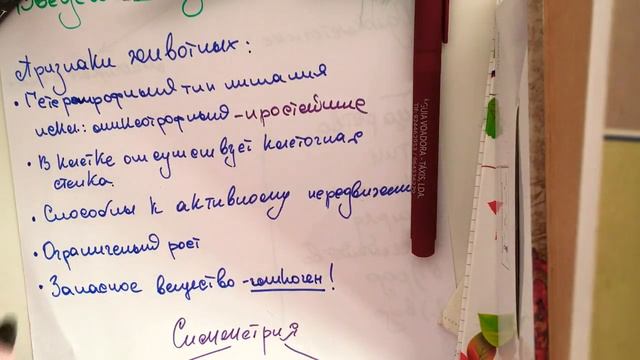 Признаки животных:
• Гетеротрофный тип питания
искл: миксотрофный - простейшие
• В клетке отсутствует клеточная
стенка.
• Способны к активному передвижению
• Ограниченый рост
• Запасное вещество - гликоген!
Симметрия
GUIA VOADORA - TAXIS, LDA.